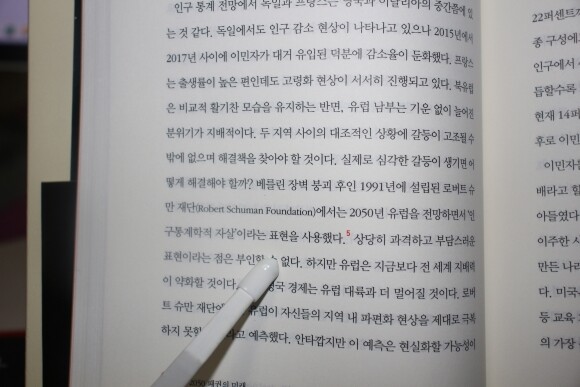 인구 통계 전망에서 독일과 프랑스는 영국과 이탈리아의 중간쯤에 있
는 것 같다. 독일에서도 인구 감소 현상이 나타나고 있으나 2015년에서
2017년 사이에 이민자가 대거 유입된 덕분에 감소율이 둔화했다. 프랑스
는 출생률이 높은 편인데도 고령화 현상이 서서히 진행되고 있다. 북유럽
은 비교적 활기찬 모습을 유지하는 반면, 유럽 남부는 기운 없이 늘어진
분위기가 지배적이다. 두 지역 사이의 대조적인 상황에 갈등이 고조될 수
밖에 없으며 해결책을 찾아야 할 것이다. 실제로 심각한 갈등이 생기면 어
떻게 해결해야 할까? 베를린 장벽 붕괴 후인 1991년에 설립된 로버트 슈
만 재단(Robert Schuman Foundation)에서는 2050년 유럽을 전망하면서 '인
구통계학적 자살'이라는 표현을 사용했다.5 상당히 과격하고 부담스러운
표현이라는 점은 부인할 수 없다. 하지만 유럽은 지금보다 전 세계 지배력
이 약화할 것이다. 영국 경제는 유럽 대륙과 더 멀어질 것이다. 로버
트 슈만 재단에 유럽이 자신들의 지역 내 파편화 현상을 제대로 극복
하지 못할 고 예측했다. 안타깝지만 이 예측은 현실화할 가능성이
2030 패권의 미래
22퍼센트
종 구성에
인구에서
듭할수록
현재 14퍼
후로 이민
이민자
배라고 할
아들였다
이주한 사
만든 나라
다. 미국
등 교육
의 가장